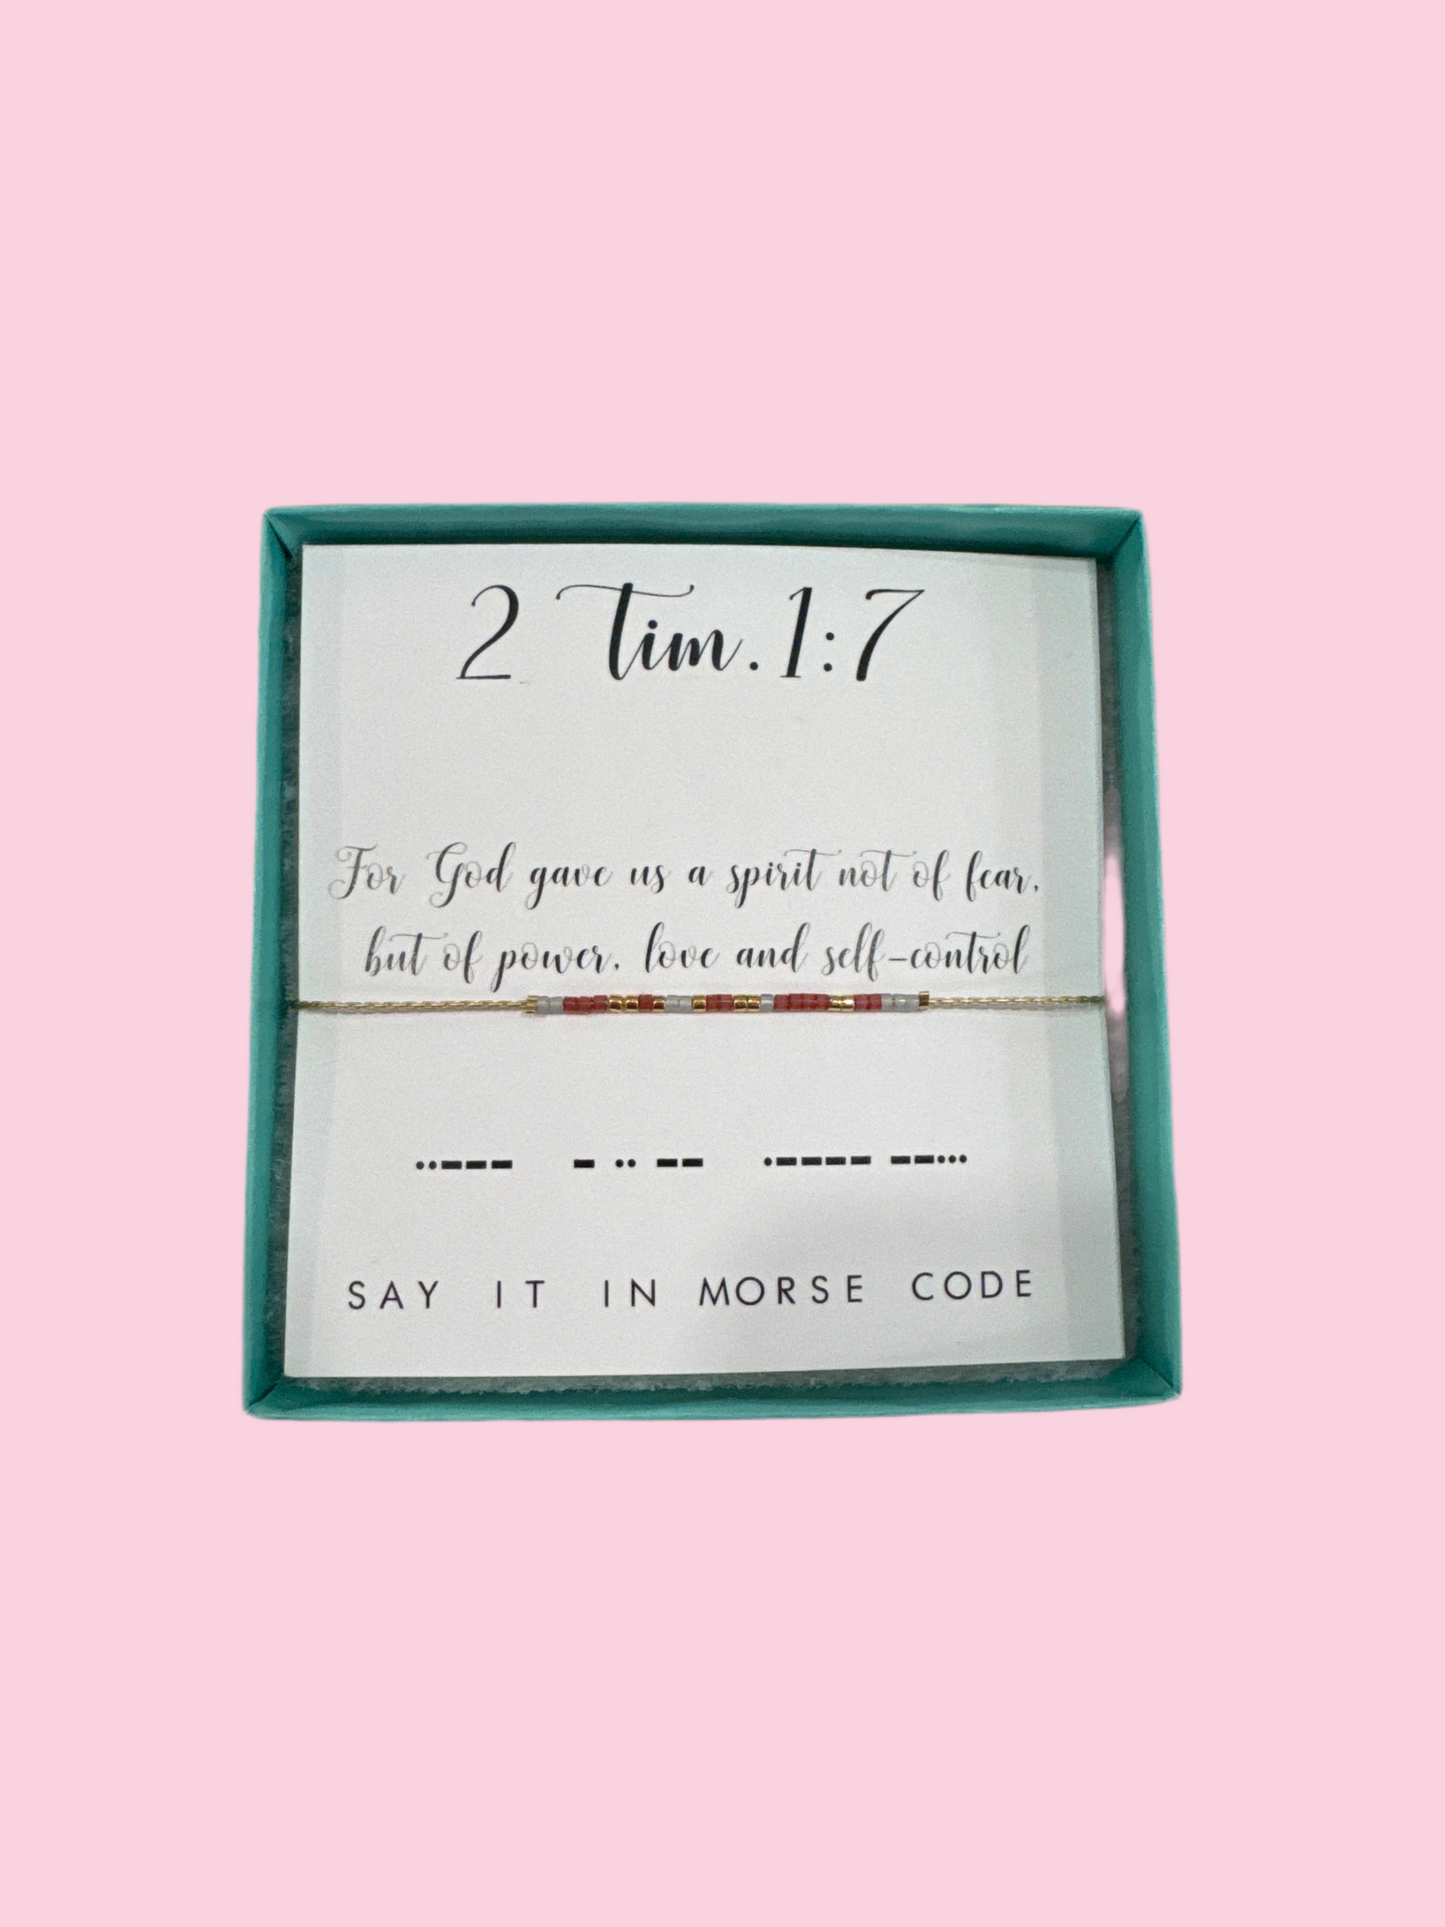 2 Tim. 1:7
For God gave us a spirit not of fear,
but of power, love and self-control
··--- - ·· -- ·---- --···
SAY IT IN MORSE CODE